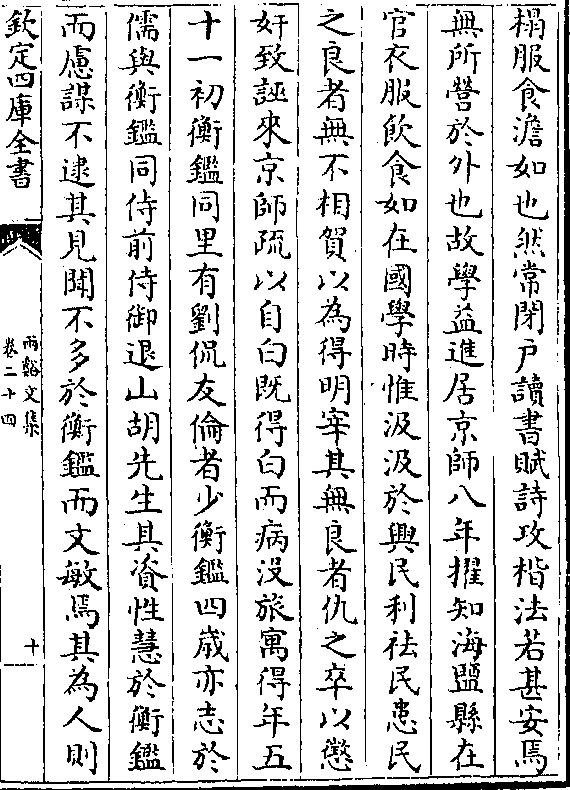 榻服食澹如也然常閉戸讀書賦詩攻楷法若甚安焉
無所營於外也故學益進居京師八年擢知海鹽縣在
官衣服飲食如在國學時惟汲汲於興民利祛民患民
之良者無不相賀以為得明宰其無良者仇之卒以懲
奸致誣來京師疏以自白既得白而病没旅寓得年五
十一初衡鑑同里有劉侃友倫者少衡鑑四歳亦志於
儒與衡鑑同侍前侍御退山胡先生其資性慧於衡鑑
而慮謀不逮其見聞不多於衡鑑而文敏焉其為人則
欽定四庫全書
兩谿文集
卷二十四
十